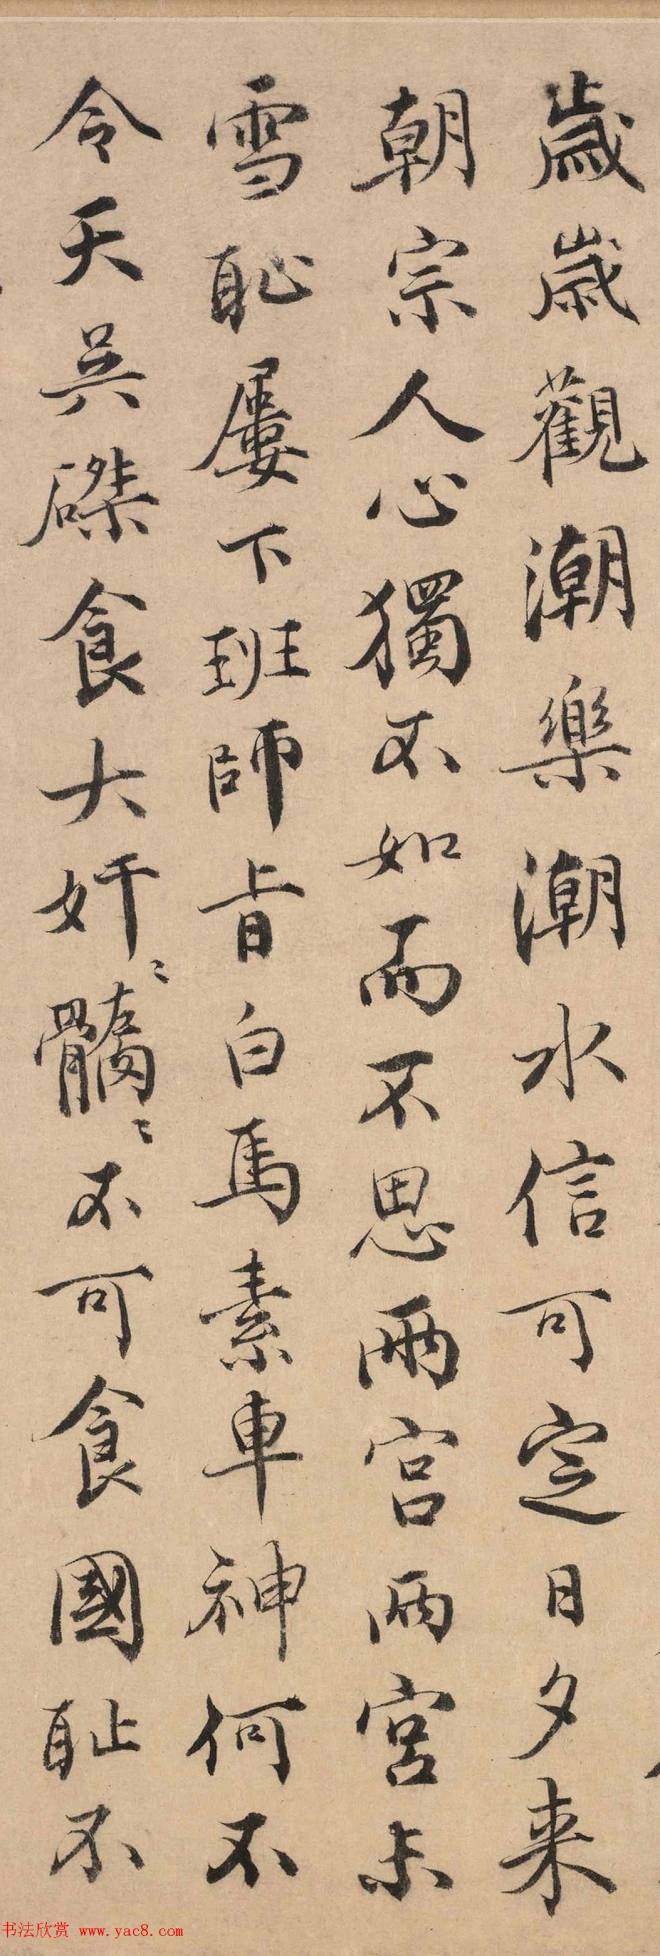 歲歲觀潮樂潮水信可定日夕来
朝宗人心獨不如而不思兩宫兩宫未
雪恥屢下班師旨白馬素車神何不
令天吴磔食大奸〻髓〻不可食國耻不
书法欣赏 www.yac8.com